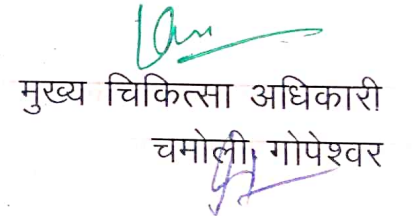 मुख्य चिकित्सा अधिकारी
चमोली, गोपेश्वर